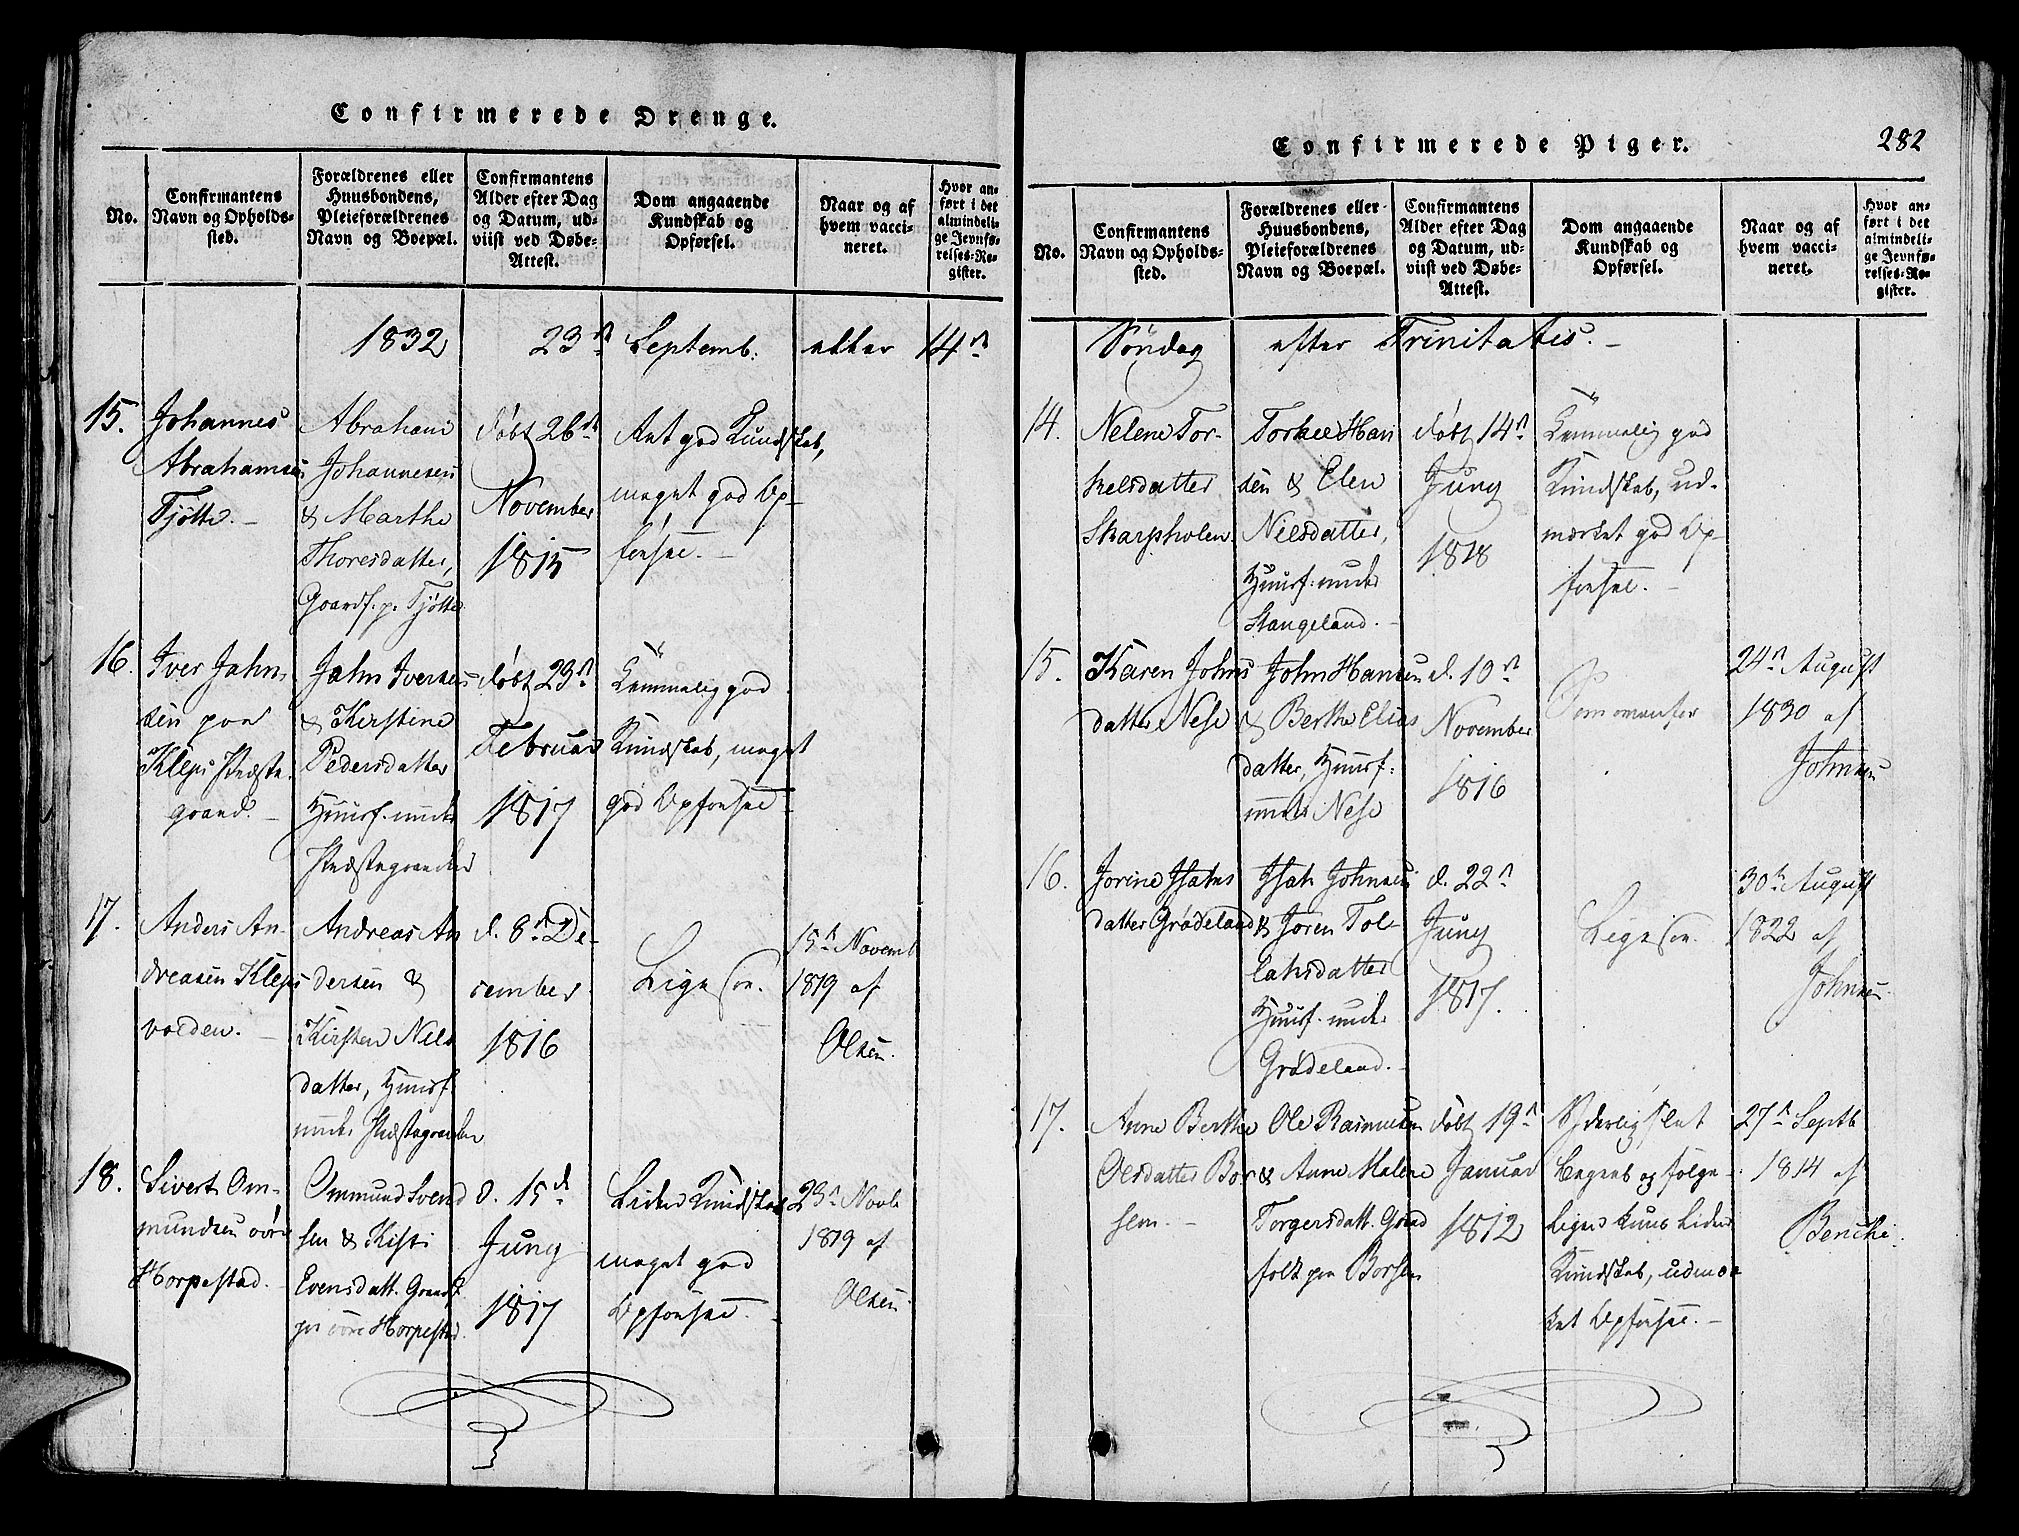 Confirmerede Drenge.
No.
Confirmantens
Navn og Opholds-
sted.
Forældrenes eller
Huusbondens,
Pleieforældrenes
Navn og Boepæl.
Confirmantens
Alder efter Dag
og Datum, ud-
viist ved Døbe-
Attest.
Dom angaaende
Kundskab og
Opførsel.
Naar og af
hvem vacci-
neret.
Hvor an-
ført i det
almindeli-
ge Jevnfø-
relses-Re-
gister.
1832 23de Septemb. etter 14de
15.
Johannes
Abrahamsen
Tjøtte.
Abraham
Johannesen
& Marthe
Thoresdatter,
Gaardf. p. Tjøtte
døbt 26de
November
1815
Ret god Kundskab,
meget god Op-
førsel.
16.
Iver Jahn-
sen paa
Kleps Præste-
gaard.
Jahn Iversen
& Kirstine
Pedersdatter
Huusf. under
Præstegaarden
døbt 23de
Februar
1817
Temmelig god
Kundskab, meget
god Opførsel
17.
Anders An-
dreasen Kleps
volden.
Andreas An
dersen &
Kirsten Nils
datter, Huusf.
under Præstegaarden
d. 8de De-
cember
1816
Ligesaa.
15de Novemb
1819 af
Olsen.
18.
Sivert Om-
mundsen øvre
Horpestad.
Ommund Svend
sen & Kisti
Evensdatt. Gaardf.
paa øvre Horpestad.
d. 15de
Juny
1817
Liden Kundskab
meget god
Opførsel
23de Novb
1819 af
Olsen.
Confirmerede Piger.
282
No.
Confirmantens
Navn og Opholds-
sted.
Forældrenes eller
Huusbondens,
Pleieforældrenes
Navn og Boepæl.
Confirmantens
Alder efter Dag
og Datum, ud-
viist ved Døbe-
Attest.
Dom angaaende
Kundskab og
Opførsel.
Naar og af
hvem vacci-
neret.
Hvor an-
ført i det
almindeli-
ge Jevnfø-
relses-Re-
gister.
Søndag efter Trinitatis.
14.
Nelene Tor-
kelsdatter
Skarpholen
Torkel Han
sen & Elen
Nilsdatter,
Huusf. under
Stangeland.
døbt 14de
Juny
1818
Temmelig god
Kundskab, ud-
mærket god Op-
førsel.
15.
Karen Johns
datter Nese
John Hansen
& Berthe Elias
datter, Huusf.
under Nese
d. 10de
November
1816
Som ovenfor
24de August
1830 af
Johnsen
16.
Jorine Isaks
datter Grødeland
Isak Johnsen
& Joren Tol-
laksdatter
Huusf. under
Grødeland.
d. 22de
Juny
1817.
Ligesaa.
30te August
1822 af
Johnsen.
17.
Anne Berthe
Olsdatter Bor
sem.
Ole Rasmusen
& Anne Malene
Torgersdatt. Gaard
folk paa Borsem
døbt 19de
Januar
1812
Yderlig slet
Begreb og følge-
ligen kuns liden
Kundskab, udmær
ket Opførsel.
27de Septb
1814 af
Bencke.